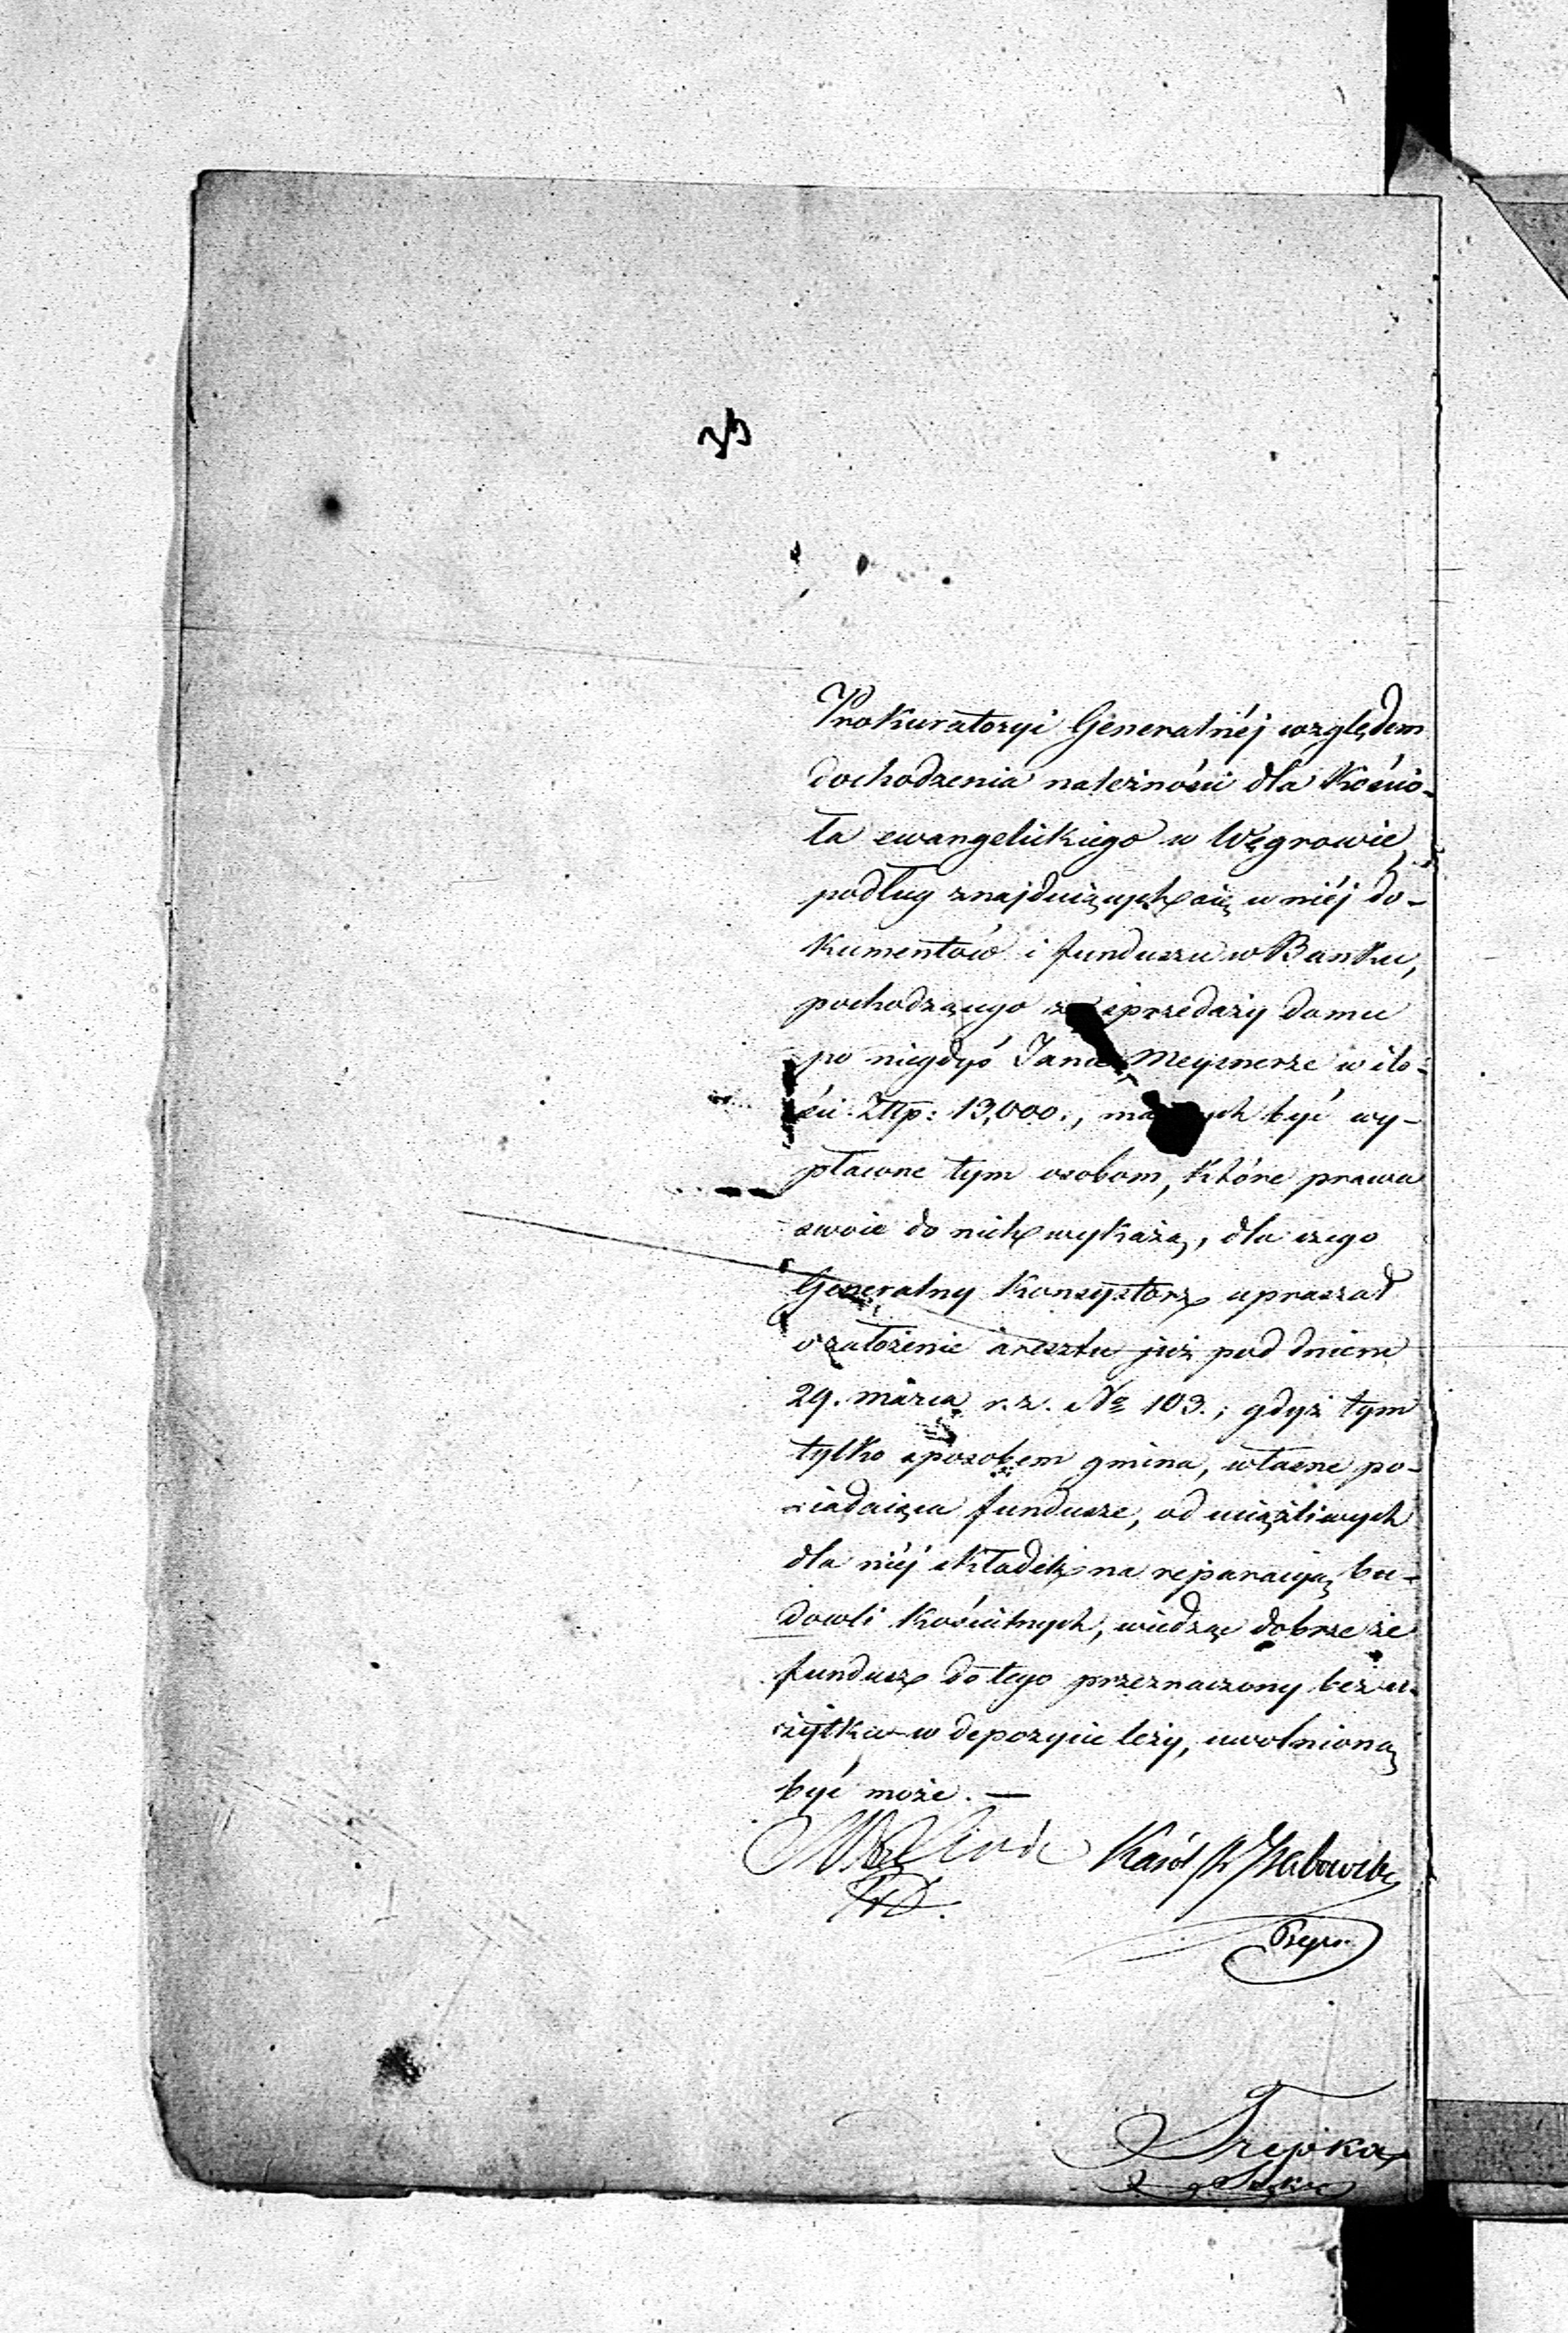 Prokuratoryi Generalnéj względem
dochodzenia należności dla Kościo-
ła ewangelickiego w Węgrowie,
podług znajduiących się w niéj do-
kumentów i funduszu w Banku,
pochodzącego z sprzedaży domu
po niegdyś Janie Meysnerze w ilo-
ści Złłp: 13,000., być wy-
płacone tym osobom, które prawa
swoie do nich wykażą, dla czego
Generalny Konsystorz upraszał
o założenie aresztu już pod dniem
29. Marca r. z. № 103.; gdyż tym
tylko sposobem gmina, własne po-
siadaiąca fundusze, od uciążliwych
dla niéj składek na reparacyą bu-
dowli Kościelnych, wiedząc dobrze że
fundusz do tego przeznaczony bez u-
żytku w depozycie leży, uwolnioną
być może. —
Karól
Trepka